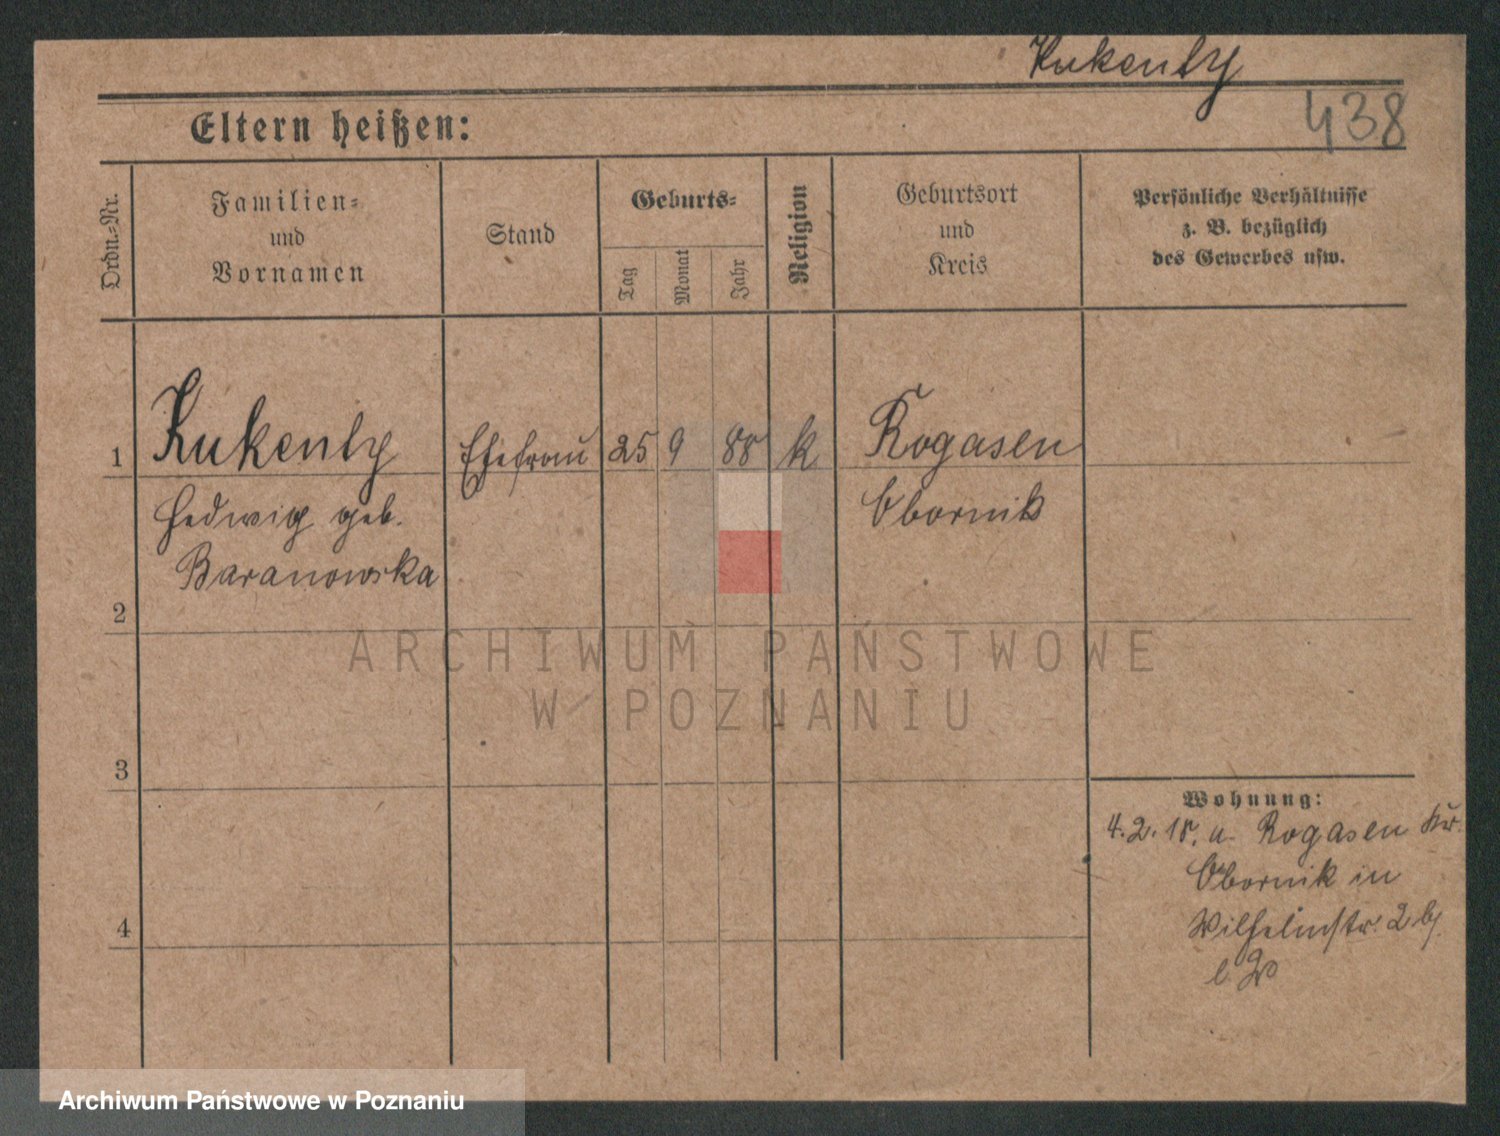 Kukenty
438
Eltern heißen:
Ordn.-Nr.
Familien-
und
Vornamen
Stand
Geburts-
Tag
Monat
Jahr
Religion
Geburtsort
und
Kreis
Persönliche Verhältnisse
z. B. bezüglich
des Gewerbes usw.
1 Kukenty Ehefrau 25 9 88 k Rogasen
Hedwig geb. Obornik
Baranowska
2
ARCHIWUM PAŃSTWOWE
W POZNANIU
3
Wohnung:
4.2.18. n. Rogasen Kr.
Obornik in
4
Wilhelmstr. 2 bj.
Archiwum Państwowe w Poznaniu